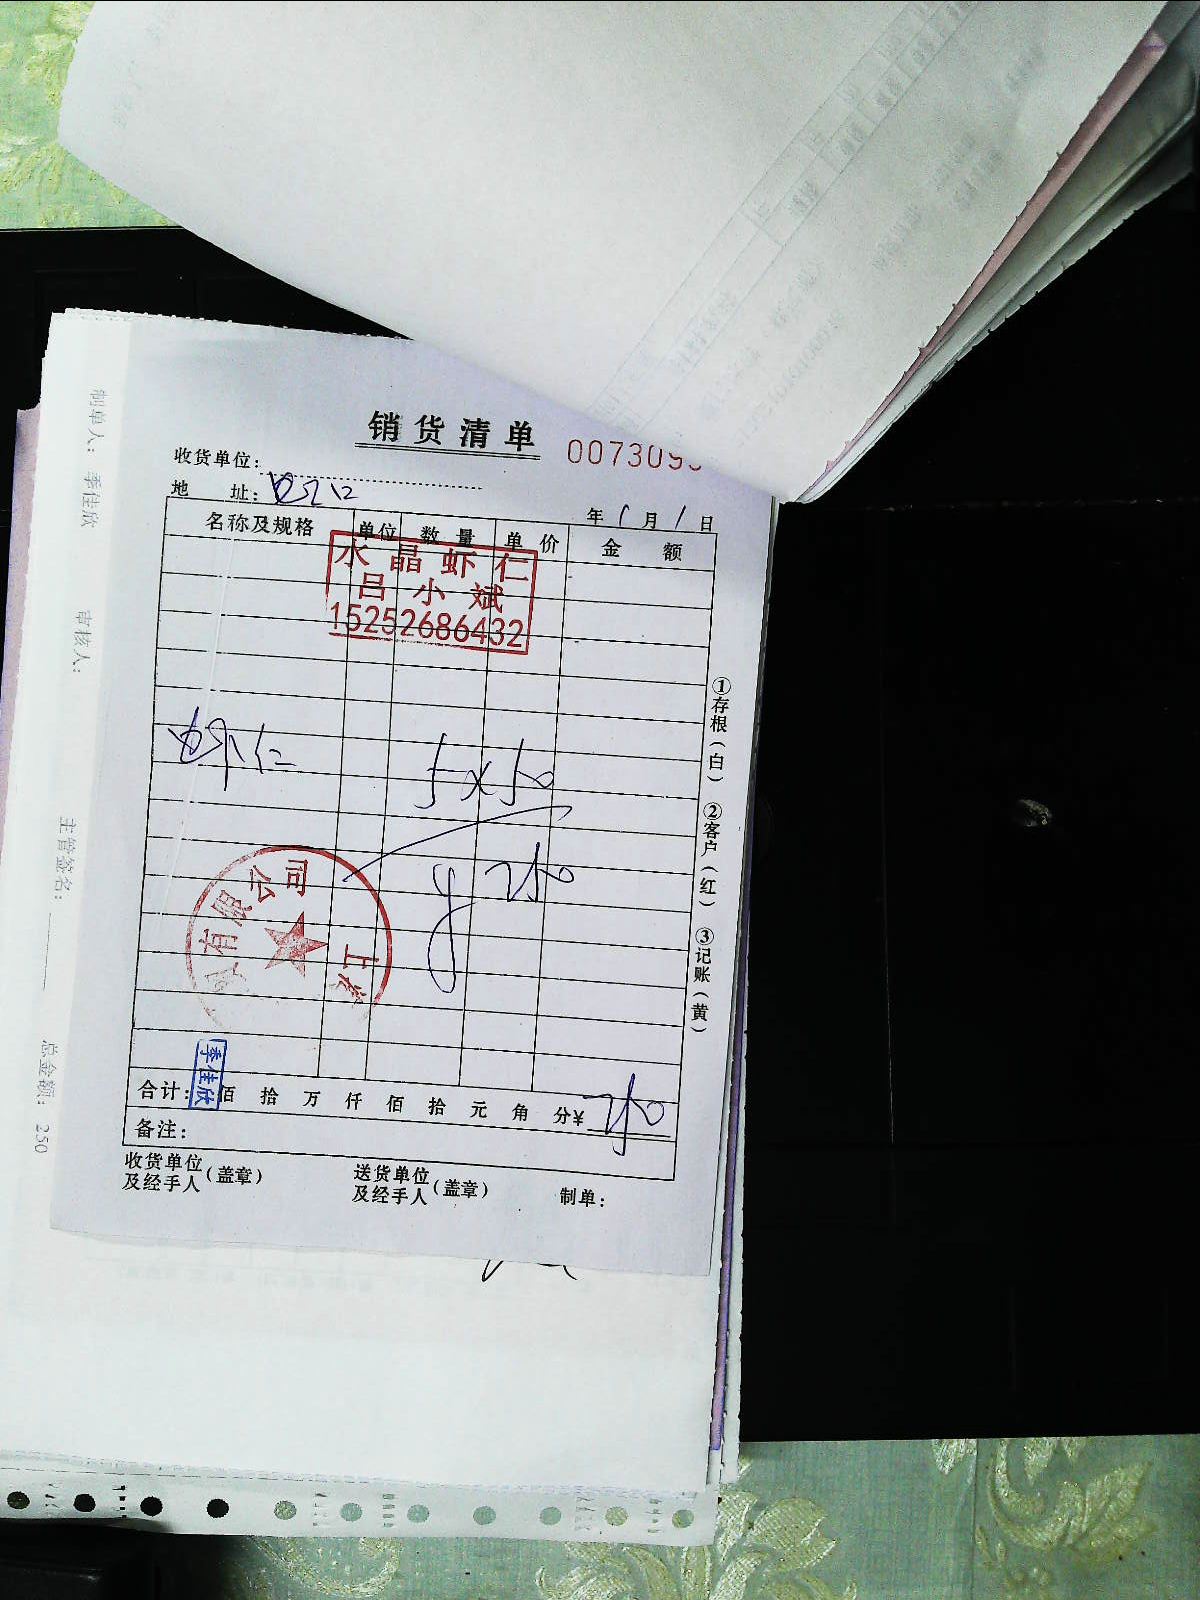 销货清单 007309
收货单位：
地 址：
年 1 月 1 日
名称及规格 单位 数量 单价 金额
水晶虾仁
吕小斌
15252686432
虾仁 5×50
¥250
有限公司
上
季佳欣
合计： 佰 拾 万 仟 佰 拾 元 角 分¥ 250
备注：
收货单位及经手人（盖章） 送货单位及经手人（盖章） 制单：
①存根（白） ②客户（红） ③记账（黄）
制单人： 季佳欣 审核人： 主管签名： 总金额： 250